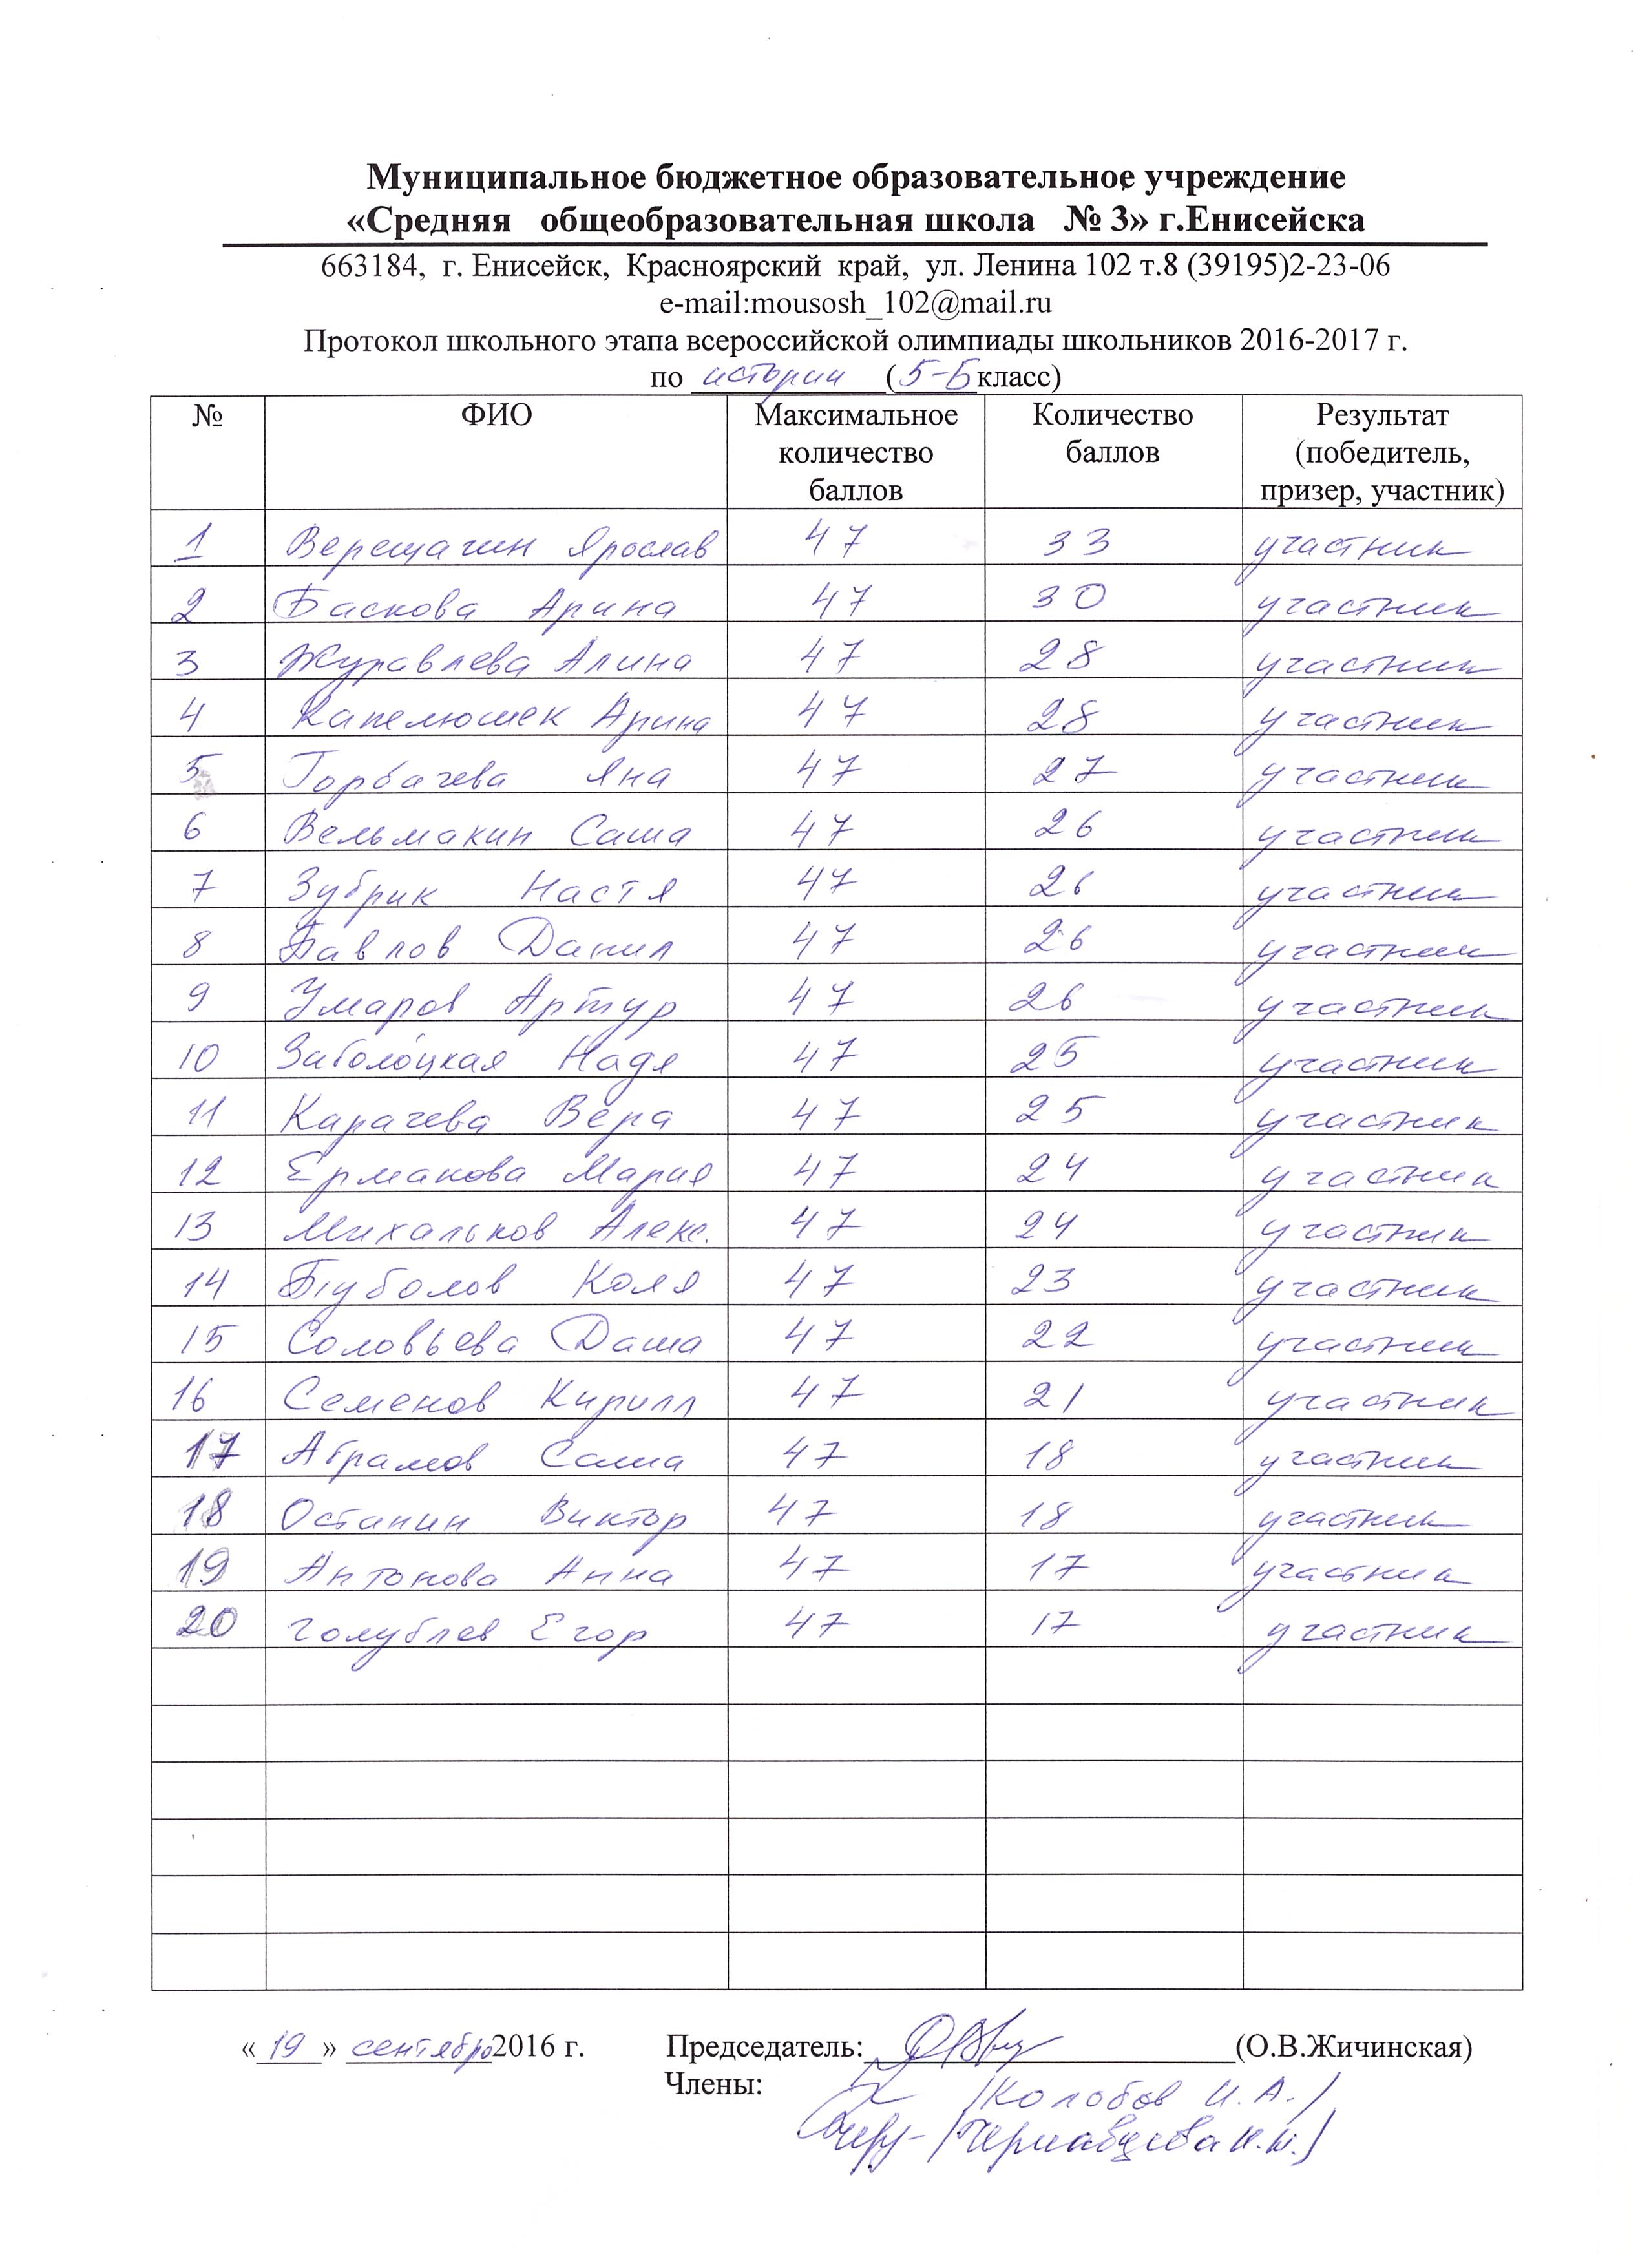 Муниципальное бюджетное образовательное учреждение
«Средняя общеобразовательная школа № 3» г.Енисейска
663184, г. Енисейск, Красноярский край, ул. Ленина 102 т.8 (39195)2-23-06
e-mail:mousosh_102@mail.ru
Протокол школьного этапа всероссийской олимпиады школьников 2016-2017 г.
по истории (5-Б класс)
№ ФИО Максимальное количество баллов Количество баллов Результат (победитель, призер, участник)
1 Верещагин Ярослав 47 33 участник
2 Баскова Арина 47 30 участник
3 Журавлева Алина 47 28 участник
4 Капелюшек Арина 47 28 участник
5 Горбачева Яна 47 27 участник
6 Вельмакин Саша 47 26 участник
7 Зубрик Настя 47 26 участник
8 Павлов Данил 47 26 участник
9 Умаров Артур 47 26 участник
10 Заболоцкая Надя 47 25 участник
11 Карачева Вера 47 25 участник
12 Ермакова Мария 47 24 участник
13 Михальков Алекс. 47 24 участник
14 Коля 47 23 участник
15 Соловьева Даша 47 22 участник
16 Семенов Кирилл 47 21 участник
17 Абрамов Саша 47 18 участник
18 Останин Виктор 47 18 участник
19 Антонова Анна 47 17 участник
20 Голублев Егор 47 17 участник
«19» сентября 2016 г. Председатель: (О.В.Жичинская)
Члены: /Колобов И.А./